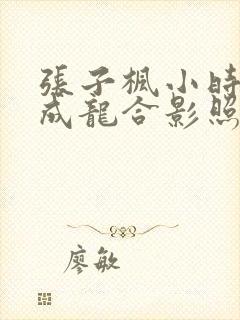 張子楓小時
成龍合影照
廖敏